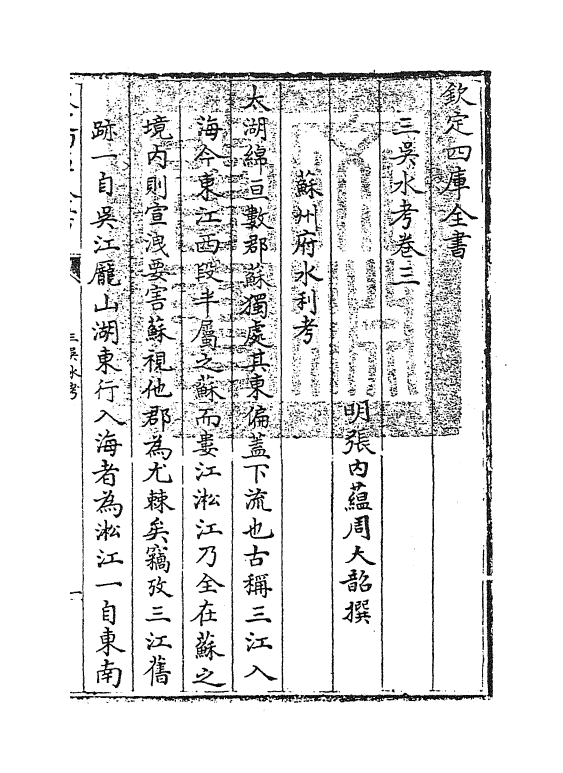 欽定四庫全書
三吳水考卷三
明張內蘊周大韶撰
蘇州府水利考
太湖綿亘數郡蘇獨處其東偏蓋下流也古稱三江入
海今東江西段半屬之蘇而婁江淞江乃全在蘇之
境內則宣洩要害蘇視他郡為尤棘矣竊攷三江舊
跡一自吳江龐山湖東行入海者為淞江一自東南
三吳水考
一